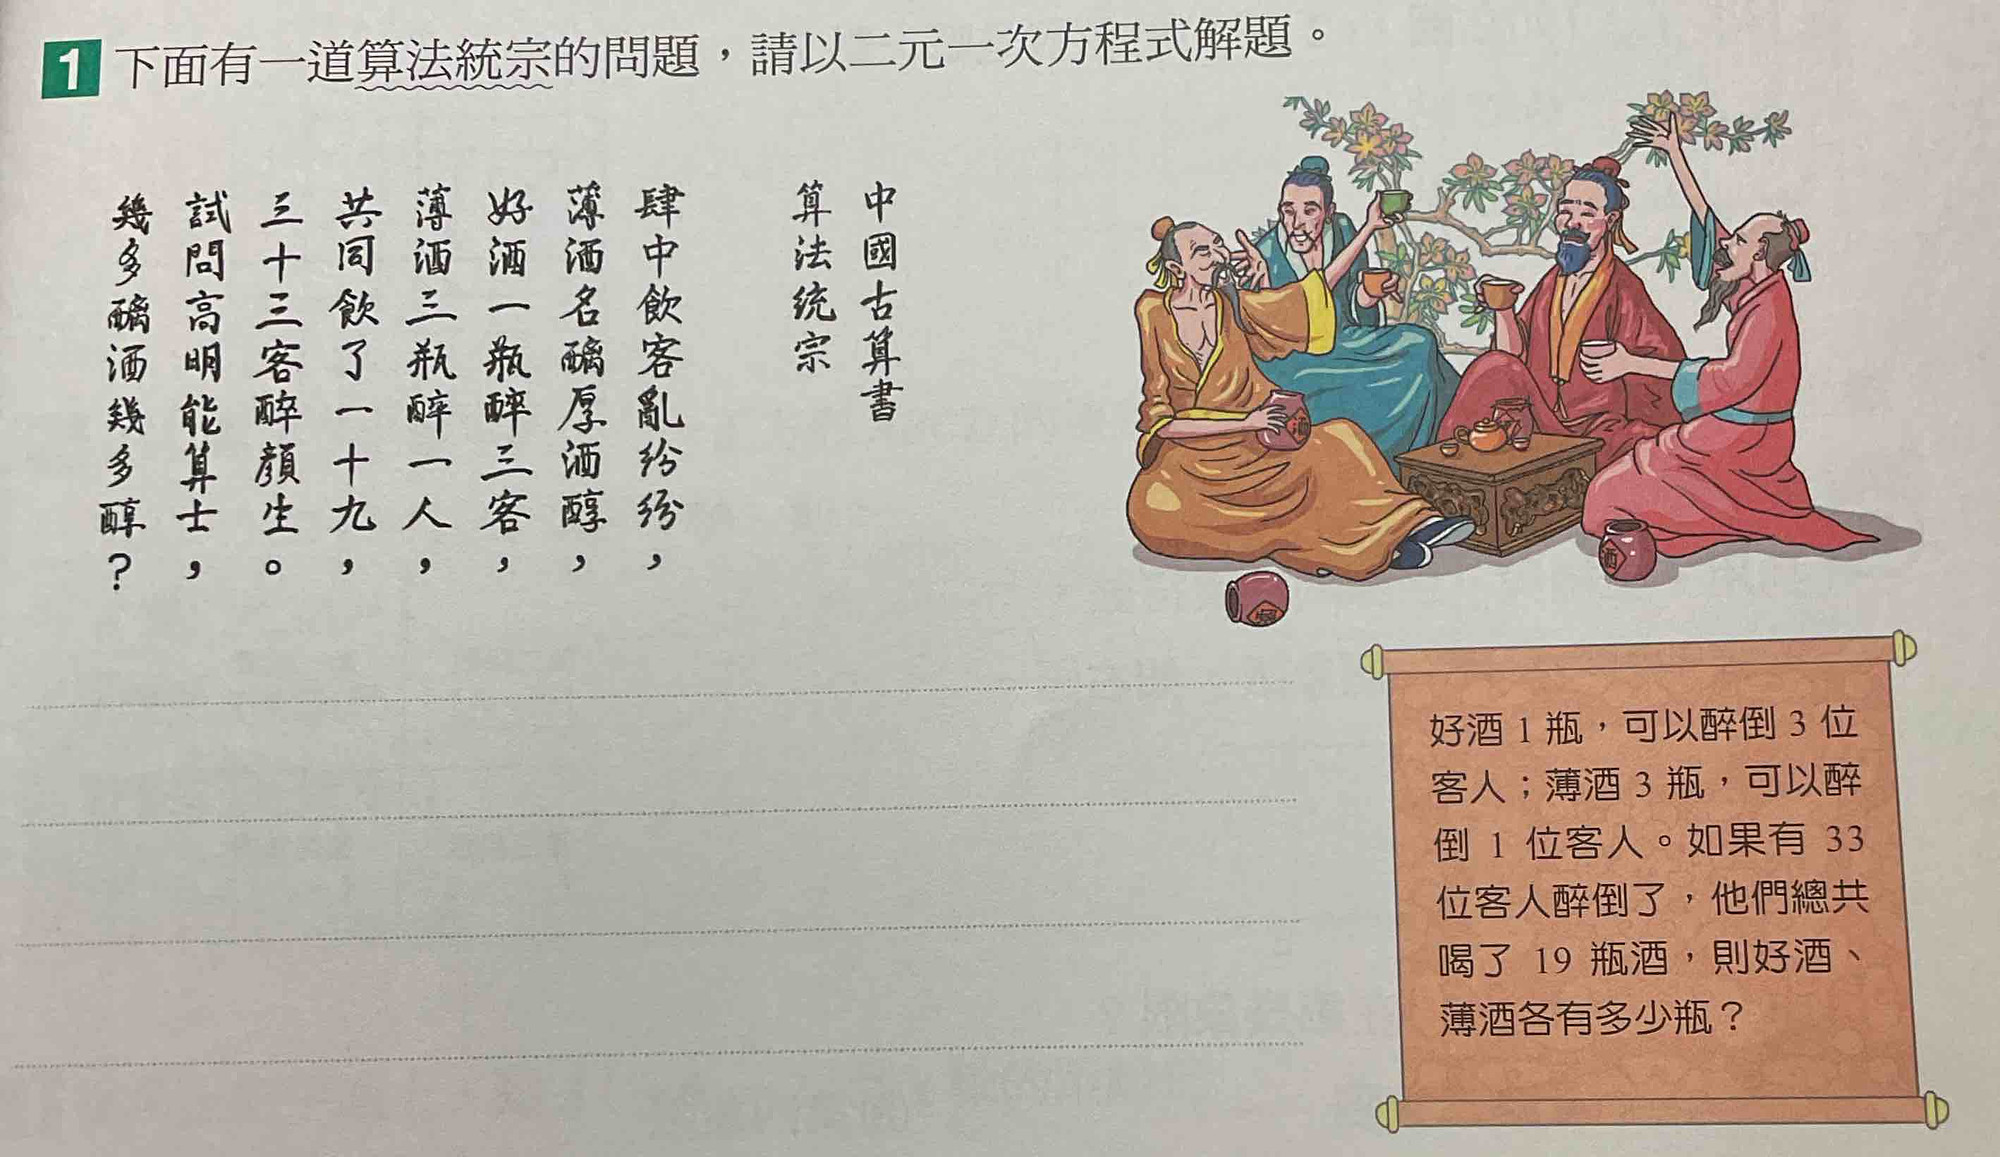 1 下面有一道算法統宗的問題，請以二元一次方程式解題。
中國古算書
算法統宗
肆中飲客亂紛紛，
薄酒名醨厚酒醇，
好酒一瓶醉三客，
薄酒三瓶醉一人，
共同飲了一十九，
三十三客醉顏生。
試問高明能算士，
幾多醨酒幾多醇？
酒
酒
好酒 1 瓶，可以醉倒 3 位
客人；薄酒 3 瓶，可以醉
倒 1 位客人。如果有 33
位客人醉倒了，他們總共
喝了 19 瓶酒，則好酒、
薄酒各有多少瓶？